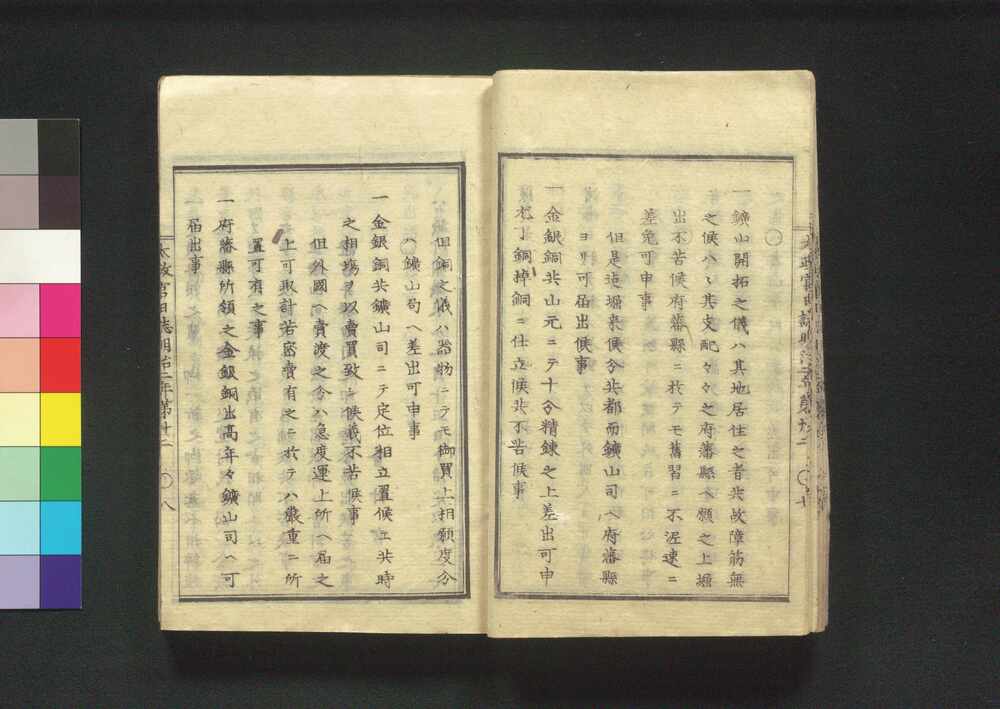 一鑛山開拓之儀ハ其地居住之者共故障筋無
之候ハヽ其支配々々之府藩縣ヘ願之上堀
出不苦候府藩縣ニ於テモ舊習ニ不泥速ニ
差免可申事
但是迠堀来候分共都而鑛山司ヘ府藩縣
ヨリ可届出候事
一金銀銅共山元ニテ十分精鍊之上差出可申
尤丁銅掉銅ニ仕立候共不苦候事
但銅之儀ハ器物ニテモ御買上相願度分
ハ鑛山司ヘ差出可申事
一金銀銅共鑛山司ニテ定位相立置候ヱ共時
之相塲ヲ以賣買致候儀不苦候事
但外國ヘ賣渡之分ハ急度運上所ヘ届之
上可取計若密賣有之ニ於テハ嚴重ニ所
置可有之事
一府藩縣所領之金銀銅出高年々鑛山司ヘ可
届出事
太政官日誌明治二年第廿二
八